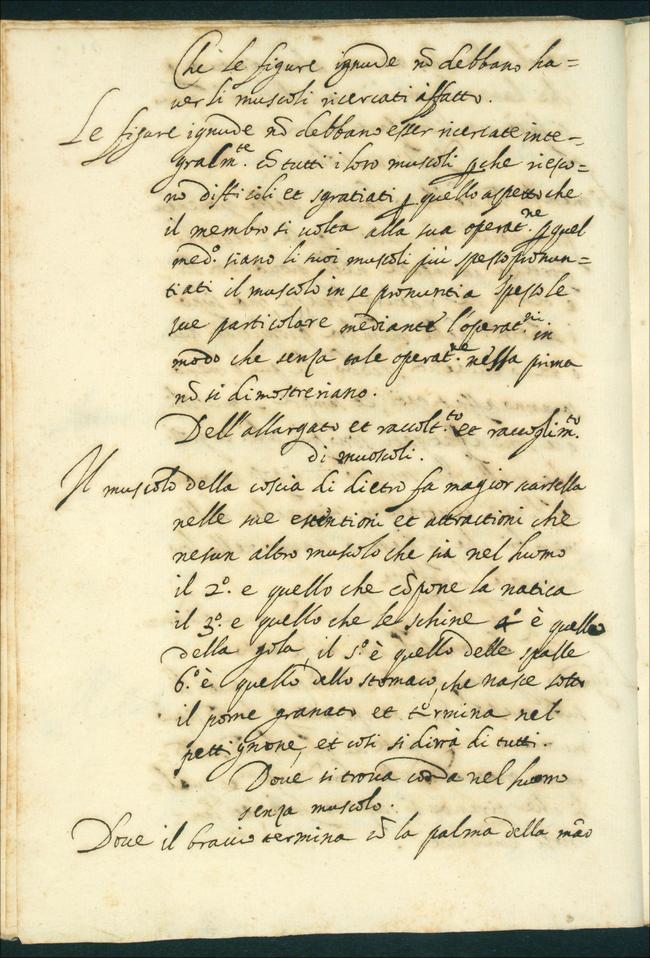 Che le figure ignude nõ debbano ha=
uer li muscoli ricercati affatto.
Le figure ignude nõ debbano esser ricercate inte=
gralmte. cõ tutti i loro muscoli ꝑche riesco=
no difficoli et sgratiati ꝑ quello aspetto che
il membro si uolta alla sua operatne. ꝑ quel
medo. siano li suoi muscoli più spesso pronun=
tiati il muscolo in se pronuntia spesso le
sue particolare mediante l'operatni. in
modo che senza tale operatne. nella prima
nõ si dimostreriano.
Dell'allargato et raccoltto. et raccoglimto.
di muscoli.
Il muscolo della coscia di dietro fa magior scarsella
nelle sue estentioni et attractioni che
nesun altro muscolo che sia nel huomo
il 2o. e quello che cõpone la natica
il 3o. e quello che le schine 4o è quello
della gola, il 5o. è quello delle spalle
6.o è quello dello stomaco, che nasce sotto
il pome granato et termina nel
pettignone, et cosi si dirà di tutti.
Doue si troua corda nel huomo
senza muscolo.
Doue il braccio termina cõ la palma della mão